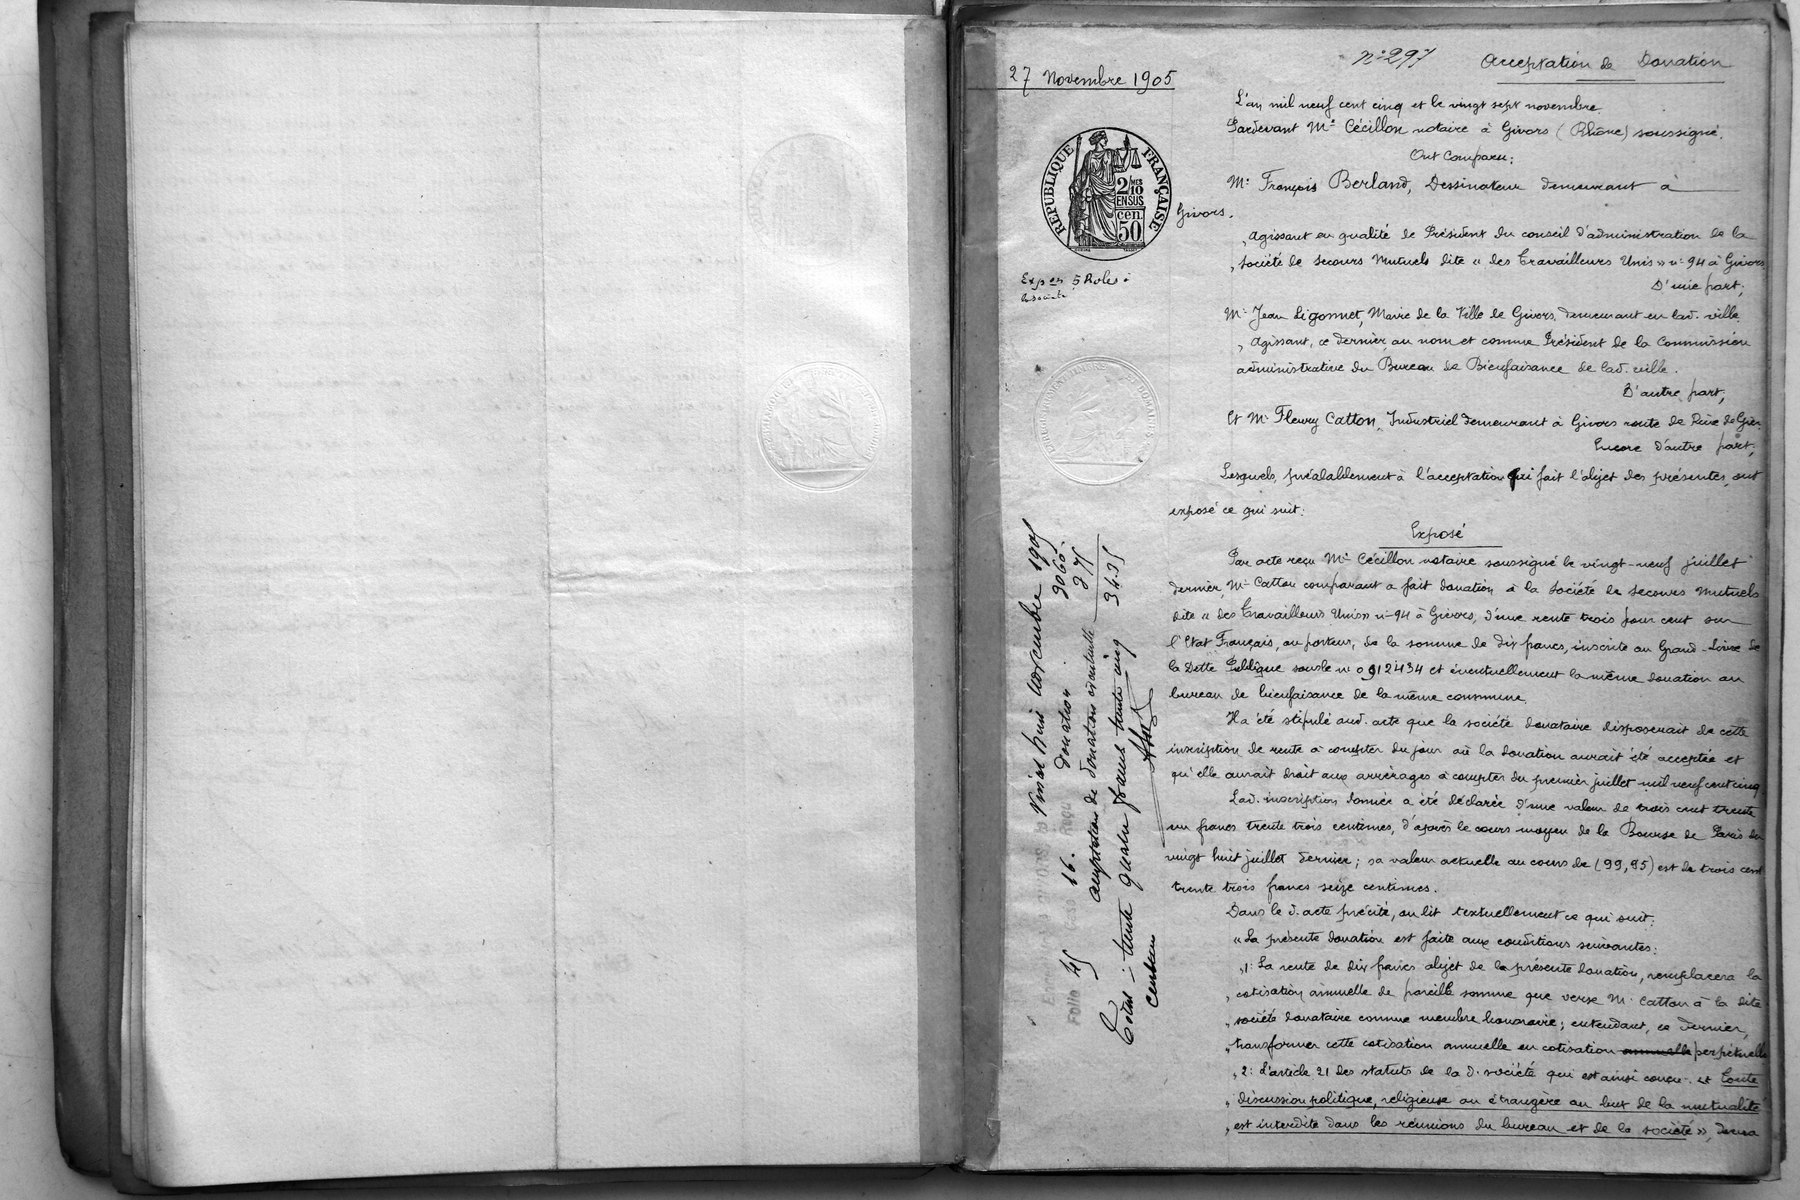 27 Novembre 1905
N° 297
Acceptation de Donation
RÉPUBLIQUE FRANÇAISE
2/10 MES
EN SUS
cen.
50
Exp en 5 Roles :
la société
L'an mil neuf cent cinq et le vingt sept novembre
Pardevant Me Cécillon notaire à Givors (Rhône) soussigné.
Ont Comparu :
Mr François Berland, Dessinateur demeurant à
Givors.
„ Agissant en qualité de Président du conseil d'administration de la
„ Société de Secours Mutuels dite « des Travailleurs Unis » n° 94 à Givors
D'une part ;
Mr Jean Ligonnet, Maire de la Ville de Givors, demeurant en lad. ville
„ Agissant, ce dernier, au nom et comme Président de la Commission
administrative du Bureau de Bienfaisance de lad. ville.
D'autre part ;
Et Mr Fleury Catton, Industriel demeurant à Givors route de Rive de Gier
Encore d'autre part ;
Lesquels, préalablement à l'acceptation qui fait l'objet des présentes, ont
exposé ce qui suit :
Exposé
Par acte reçu Me Cécillon notaire soussigné le vingt-neuf juillet
dernier, Mr Catton comparant a fait donation à la Société de Secours Mutuels
dite « des Travailleurs Unis » n° 94 à Givors, d'une rente trois pour cent sur
l'Etat Français, au porteur, de la somme de dix francs, inscrite au Grand-Livre de
la Dette Publique sous le n° 0912434 et éventuellement la même donation au
bureau de bienfaisance de la même commune.
Il a été stipulé aud. acte que la société donataire disposerait de cette
inscription de rente à compter du jour où la donation aurait été acceptée et
qu'elle aurait droit aux arrérages à compter du premier juillet mil neuf cent cinq.
Lad. inscription donnée a été déclarée d'une valeur de trois cent trente
un francs trente trois centimes, d'après le cours moyen de la Bourse de Paris du
vingt huit juillet dernier ; sa valeur actuelle au cours de (99,95) est de trois cent
trente trois francs seize centimes.
Dans le d. acte précité, on lit textuellement ce qui suit :
« La présente donation est faite aux conditions suivantes :
„ 1° La rente de dix francs objet de la présente donation, remplacera la
„ cotisation annuelle de pareille somme que verse Mr Catton à la dite
„ société donataire comme membre honoraire ; entendant, ce dernier,
„ transformer cette cotisation annuelle en cotisation annuelle perpétuelle
„ 2° L'article 21 des statuts de la d. société qui est ainsi conçu : « Toute
„ discussion politique, religieuse ou étrangère au but de la mutualité
„ est interdite dans les réunions du bureau et de la société », devra
Vingt huit novembre 1905
Folio 45 Case 16. Reçu donation 3060
acceptation de donation éventuelle 375
3435
Total : trente quatre francs trente cinq
centimes